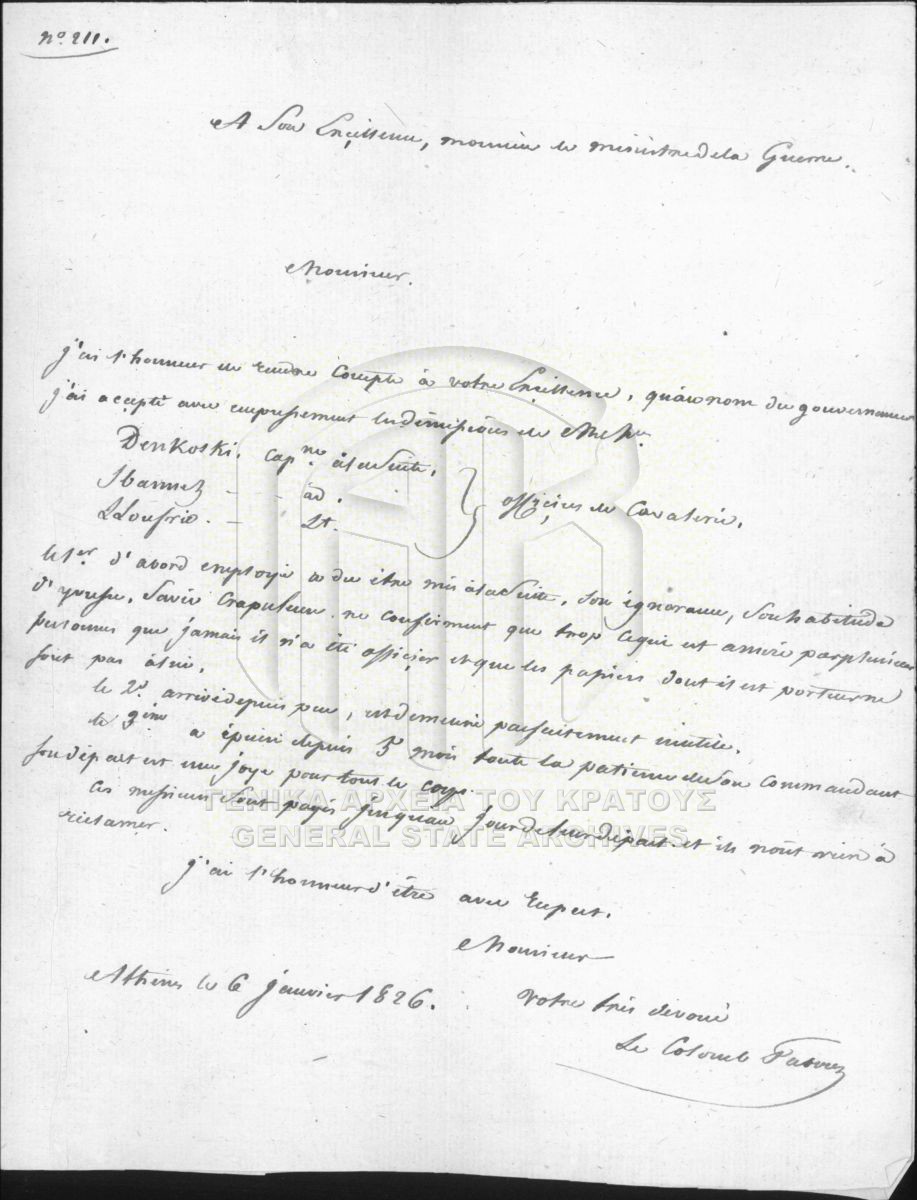 nº 211.
A Son Excellence, monsieur le ministre de la Guerre.
Monsieur.
j'ai l'honneur de rendre Compte à votre Excellence, qu'au nom du gouvernement
j'ai acepté avec empressement les démissions de MM.rs
Denkoski. capne à la Suite.
id.
Lt.
officiers de Cavalerie.
le 1er d'abord employé a du être mis à la Suite. Son ignorance, Son habitude
d'yvresse. Sa vie Crapuleuse. ne confirment que trop ce qui est assuré par plusieurs
personnes que jamais il n'a été officier et que les papiers dont il est porteur ne
sont pas à lui.
le 2d arrivé depuis peu, est demeuré parfaitement inutile.
le 3ème a épuisé depuis 5 mois toute la patience de Son commandant
son départ est une joye pour tout le corps.
Ces messieurs Sont payés jusqu'au jour de leur départ. et ils n'ont rien à
réclamer.
j'ai l'honneur d'être avec respect.
Monsieur
Athènes le 6 janvier 1826.
votre très dévoué
Le Colonel Fabvier
ΓΕΝΙΚΑ ΑΡΧΕΙΑ ΤΟΥ ΚΡΑΤΟΥΣ
GENERAL STATE ARCHIVES